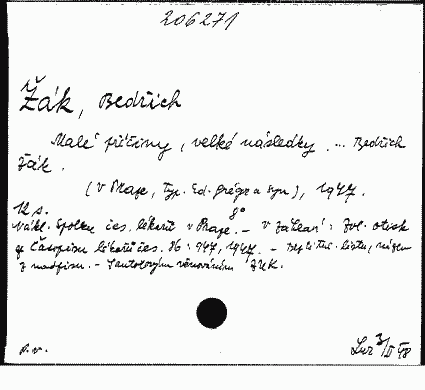 206271
Žák, Bedřich
Malé příčiny, velké následky ... Bedřich
Žák.
(V Praze, Typ. Ed. Grégr a syn), 1947.
12 s. 8°
Nákl. Spolku čes. lékařů v Praze. – V záhlaví: Zvl. otisk
z Časopisu lékařů čes. 86: 947, 1947. – Bez tit. listu, název
z nadpisu. – S autorovým věnováním ZUK.
p.v.
3/II 48